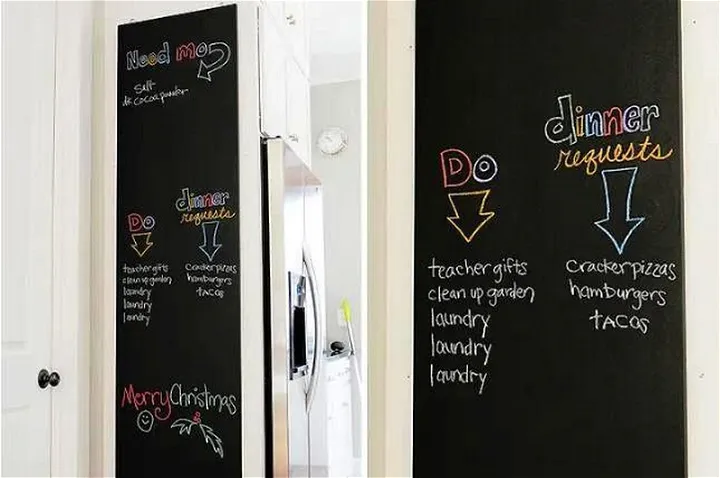 Need mo
Salt
dk cocoa powder
Do
teacher gifts
clean up garden
laundry
laundry
laundry
dinner
requests
crackerpizzas
hamburgers
tacos
Merry Christmas
Do
teacher gifts
clean up garden
laundry
laundry
laundry
dinner
requests
crackerpizzas
hamburgers
tacos